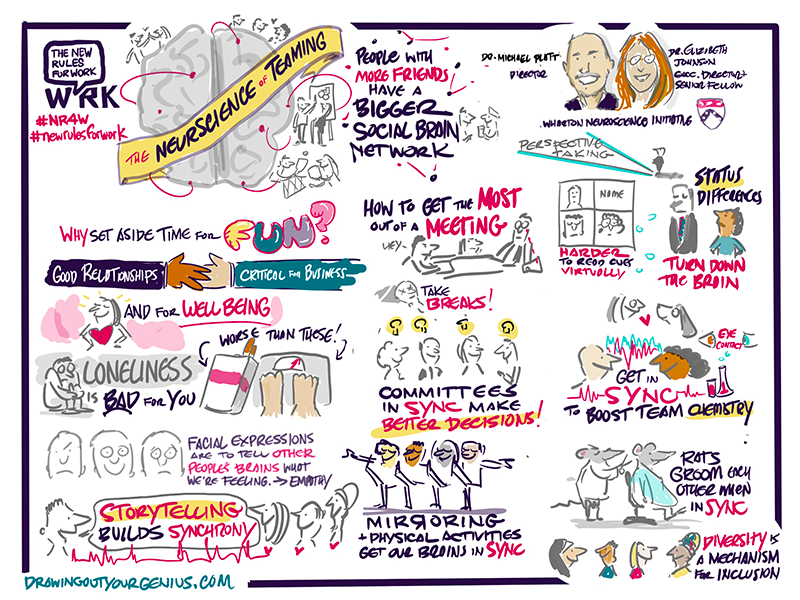 THE NEW
RULES
FOR WORK
WRK
#NR4W
#newrulesforwork
THE NEURSCIENCE OF TEAMING
PEOPLE WITH
MORE FRIENDS
HAVE A
BIGGER
SOCIAL BRAIN
NETWORK
DR. MICHAEL PLATT
DIRECTOR
DR. ELIZIBETH
JOHNSON
EXEC. DIRECTOR +
SENIOR FELLOW
WHARTON NEUROSCIENCE INITIATIVE
PERSPECTIVE
TAKING
NAME
HARDER
TO READ CUES
VIRTUALLY
STATUS
DIFFERENCES
TURN DOWN
THE BRAIN
WHY SET ASIDE TIME FOR FUN?
GOOD RELATIONSHIPS
CRITICAL FOR BUSINESS
AND FOR WELL BEING
LONELINESS
IS BAD FOR YOU
WORSE THAN THESE!
FACIAL EXPRESSIONS
ARE TO TELL OTHER
PEOPLE'S BRAINS WHAT
WE'RE FEELING. → EMPATHY
STORYTELLING
BUILDS SYNCHRONY
HOW TO GET THE MOST
OUT OF A MEETING
HEY~
TAKE
BREAKS!
COMMITTEES
IN SYNC MAKE
BETTER DECISIONS!
MIRRORING
+ PHYSICAL ACTIVITIES
GET OUR BRAINS IN SYNC
EYE
CONTACT
GET IN
SYNC
TO BOOST TEAM CHEMISTRY
RATS
GROOM EACH
OTHER WHEN
IN SYNC
DIVERSITY IS
A MECHANISM
FOR INCLUSION
DRAWINGOUTYOURGENIUS.COM